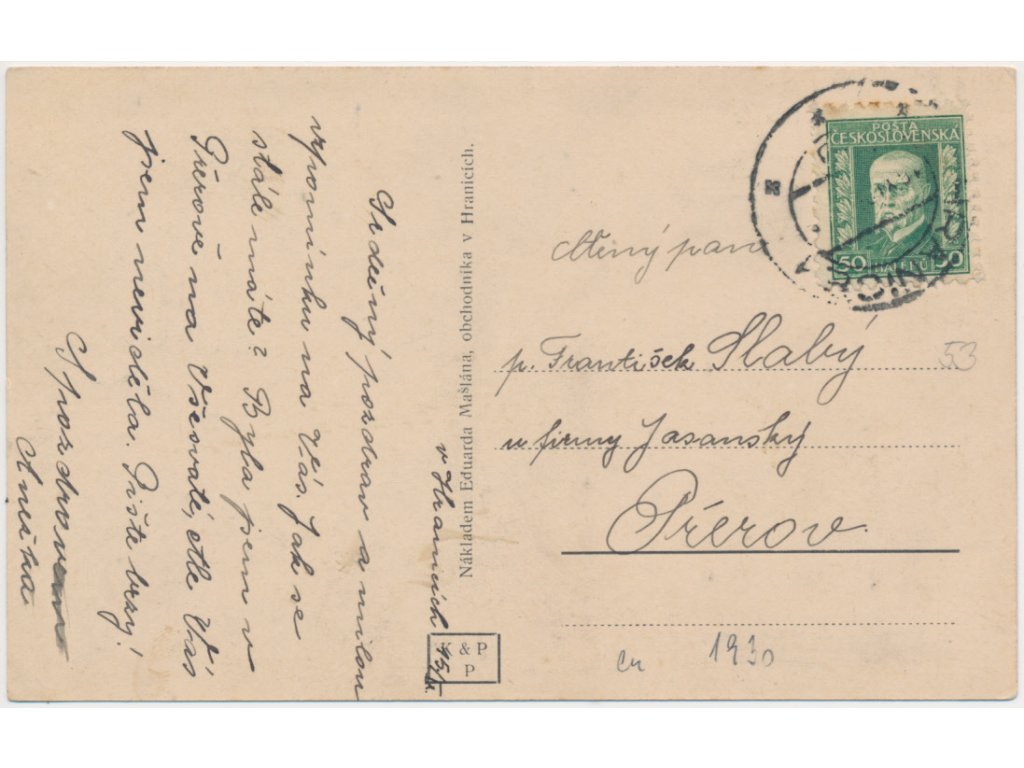 v Hranicích 15/
Srdečný pozdrav a milou
vzpomínku na Vás. Jak se
stále máte? Byla jsem v
Přerově na Všesvaté, ale Vás
jsem neviděla. Pište brzy!
S pozdravem
Anežka
Nákladem Eduarda Mašlána, obchodníka v Hranicích.
& P
P
POŠTA
ČESKOSLOVENSKA
50 HALÉŘŮ 50
Ctěný pan
p. František Slabý
53
u firmy Jasanský
Přerov
1930